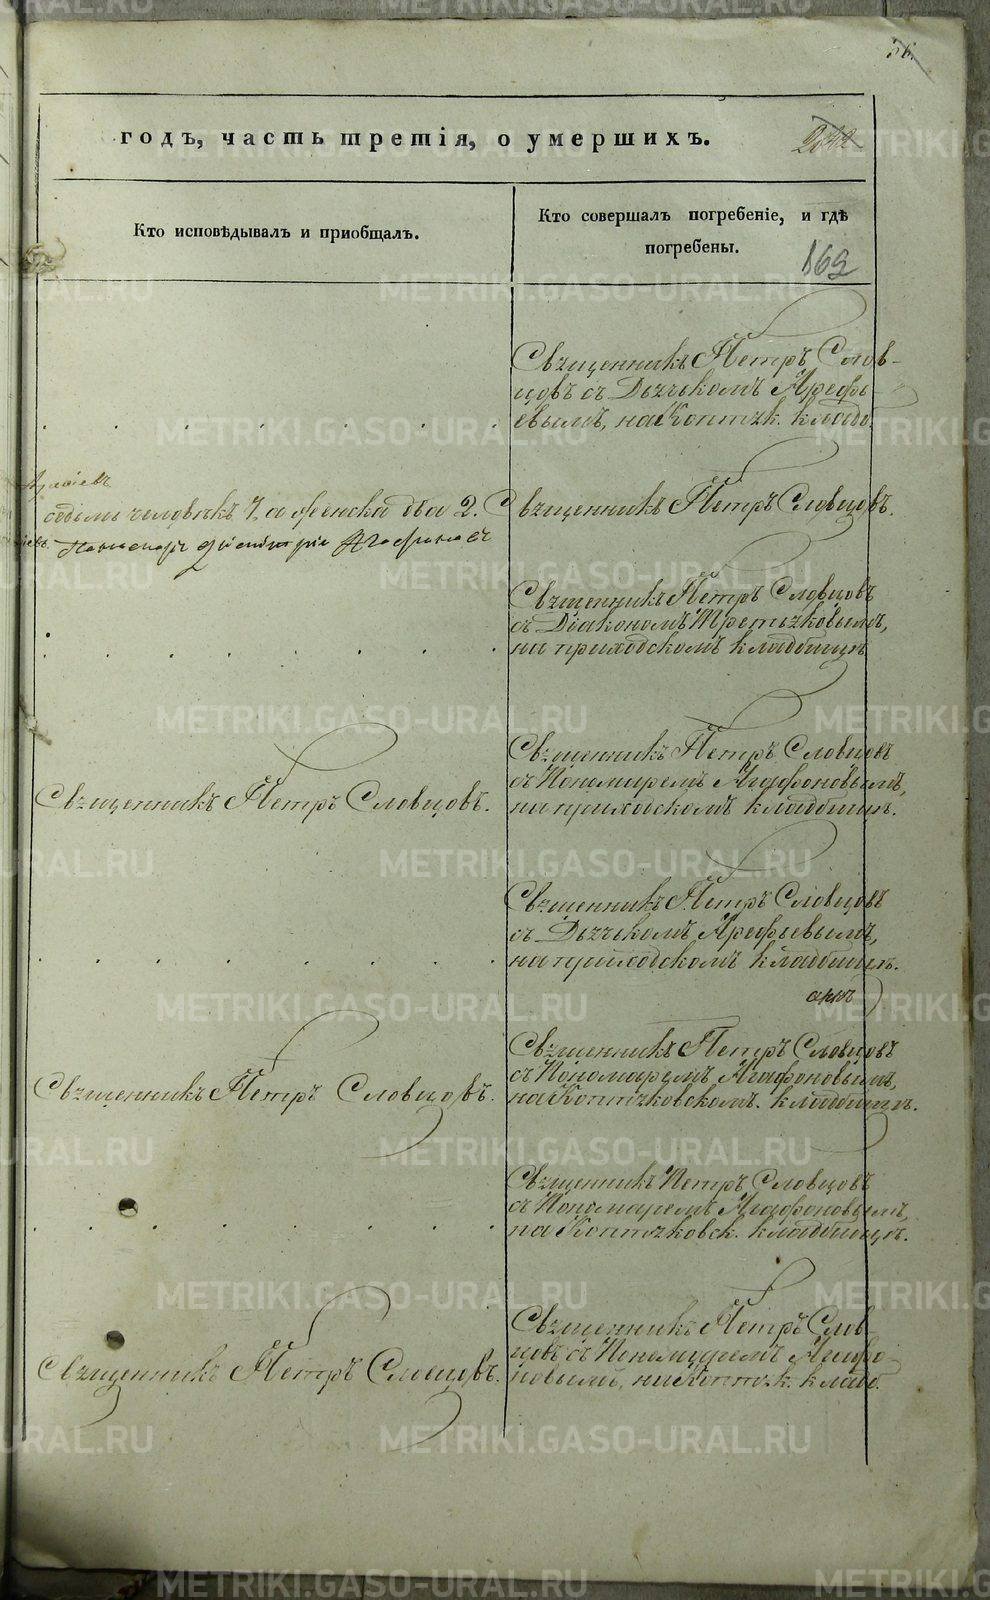 56.
годъ, часть третія, о умершихъ.
Кто исповѣдывалъ и приобщалъ.
Кто совершалъ погребеніе, и гдѣ
погребены.
169
Священникъ Петръ Слов-
цовъ съ Дьячькомъ Арефь-
евымъ, на Коптяк. кладб.
седьмь человѣкъ 7, а женска два 2.
Священникъ Петръ Словцовъ.
Священникъ Петръ Словцовъ
съ Діакономъ Третьяковымъ,
на приходскомъ кладбищѣ
Священникъ Петръ Словцовъ.
Священникъ Петръ Словцовъ
съ Пономаремъ Агафоновымъ,
на приходскомъ кладбищѣ.
Священникъ Петръ Словцовъ
съ Дьячькомъ Арефьевымъ,
на приходскомъ кладбищѣ.
Священникъ Петръ Словцовъ.
Священникъ Петръ Словцовъ
съ Пономаремъ Агафоновымъ,
на Коптяковскомъ. кладбищѣ.
Священникъ Петръ Словцовъ
съ Пономаремъ Агафоновымъ,
на Коптяковск. кладбищѣ.
Священникъ Петръ Словцовъ.
Священникъ Петръ Слов-
цовъ съ Пономаремъ Агафо-
новымъ, на Коптяк. кладб.
METRIKI.GASO-URAL.RU